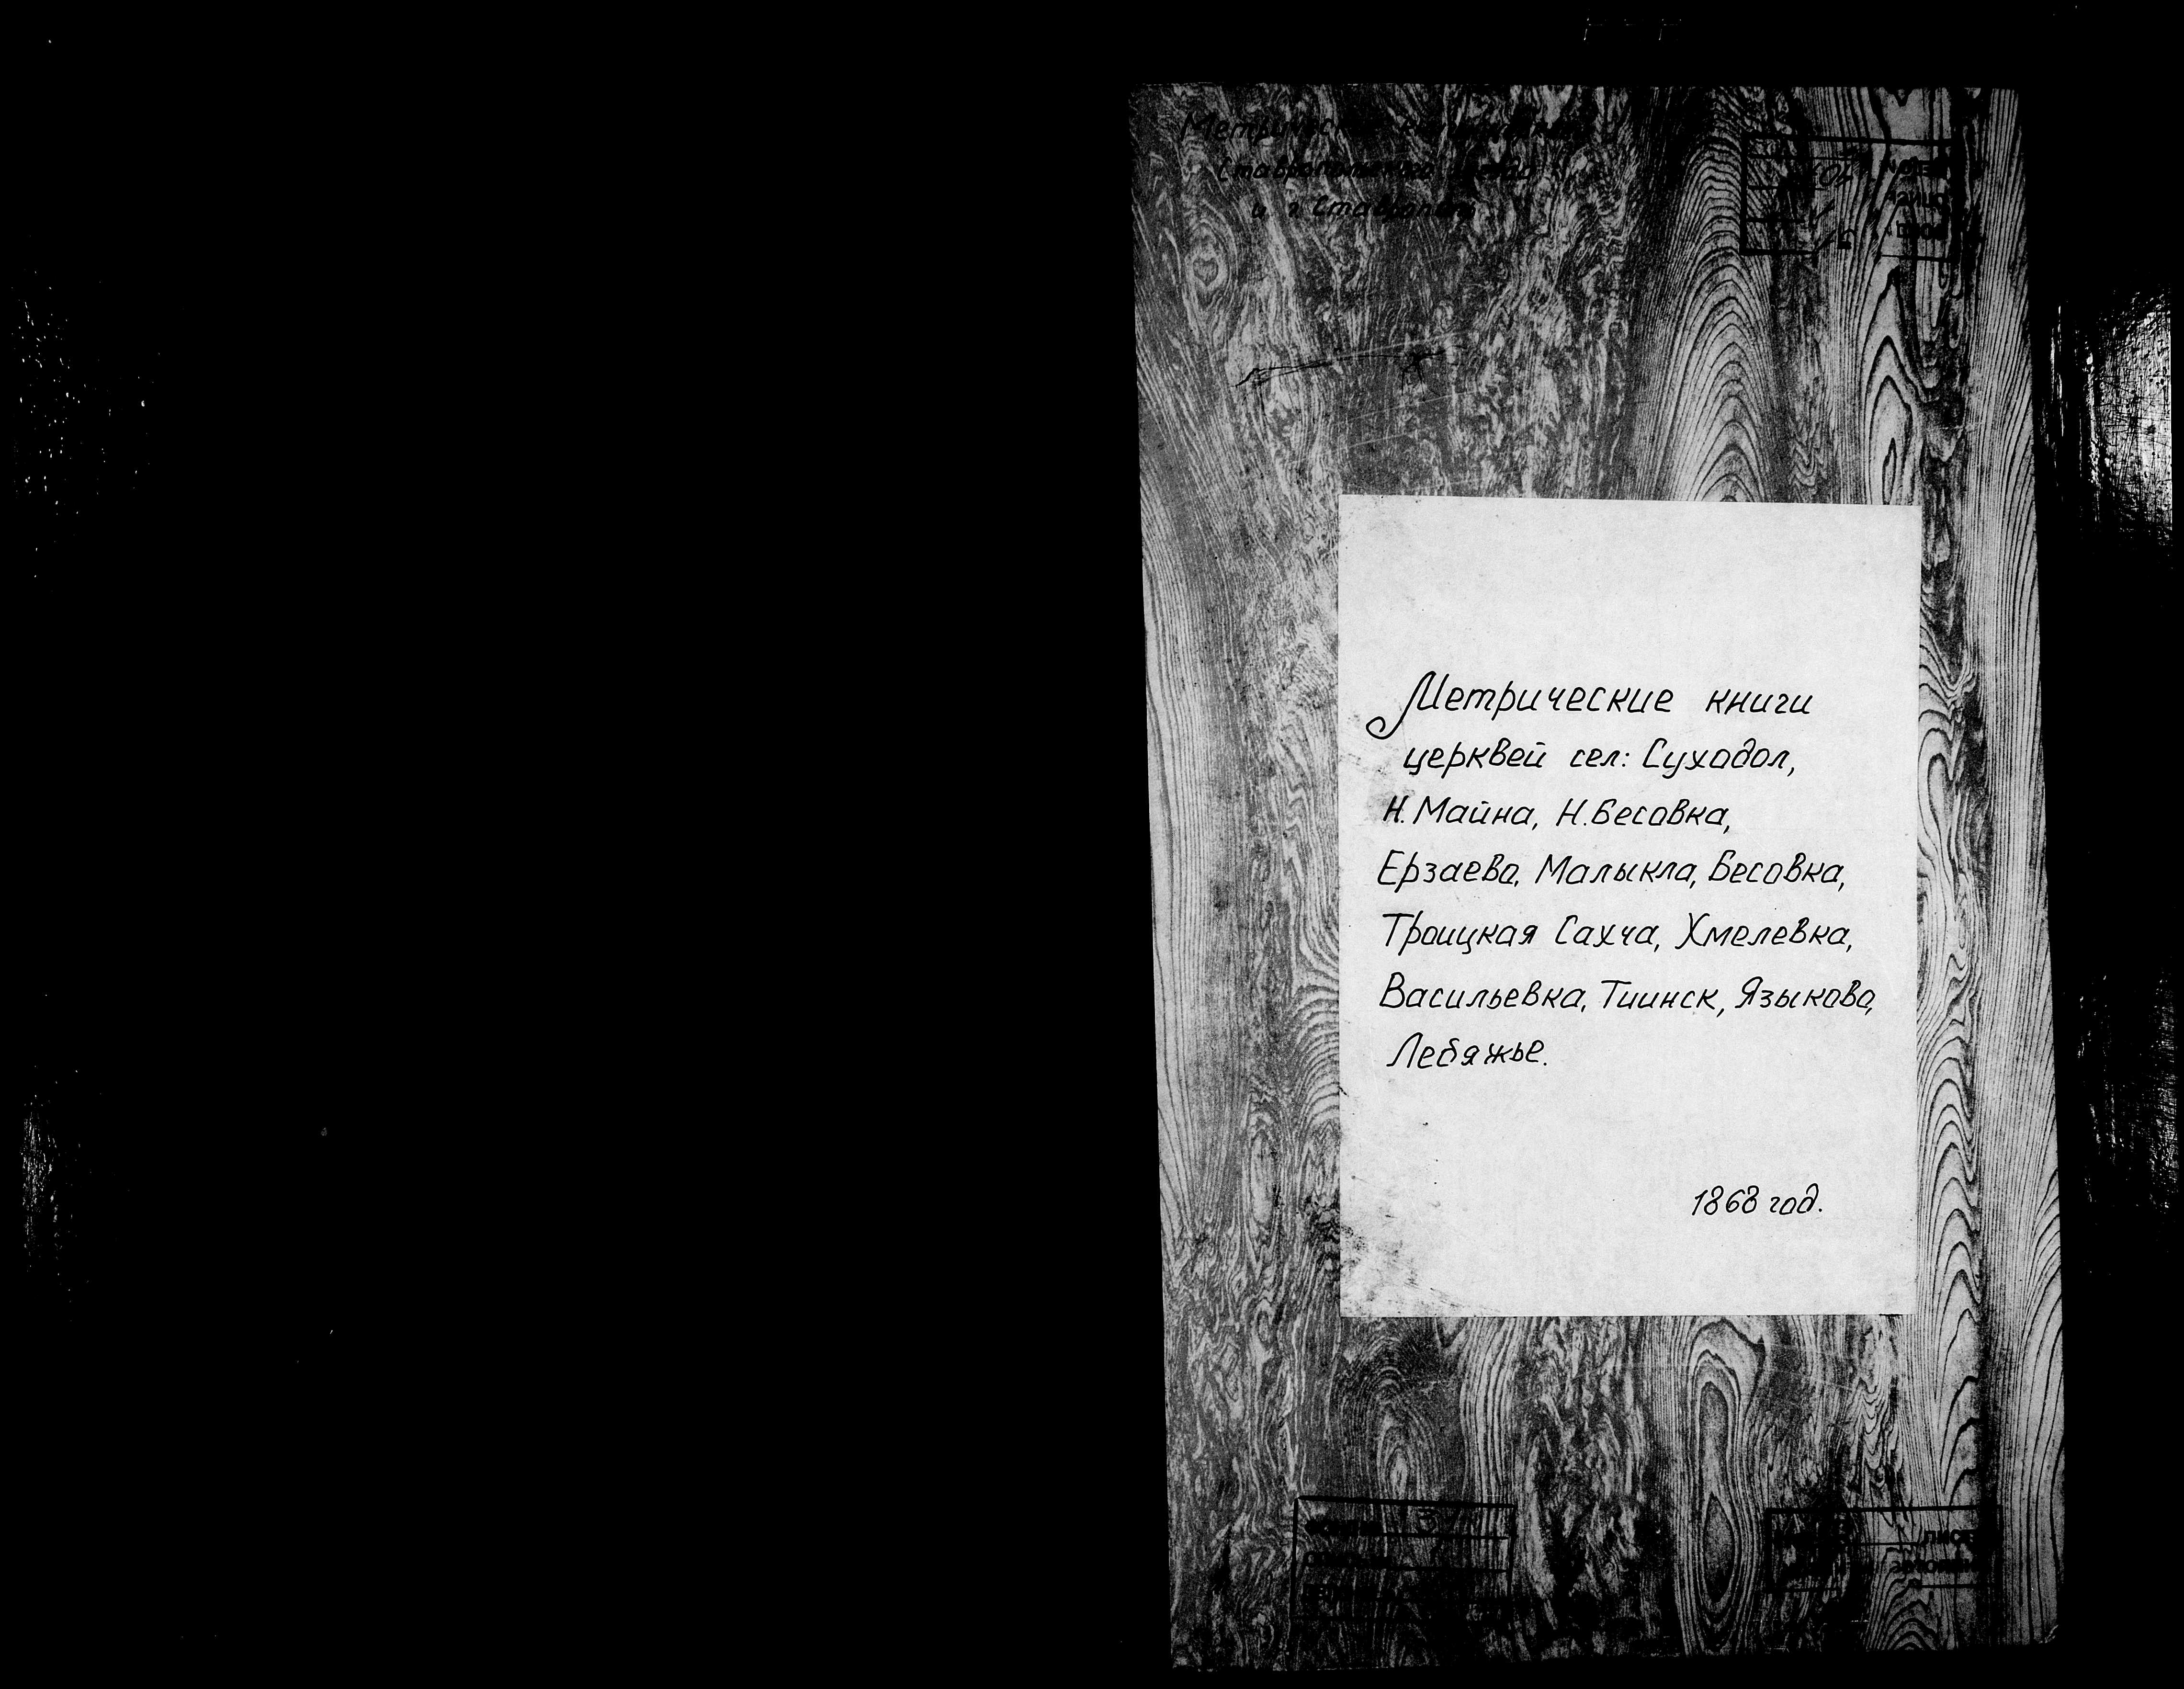 Ставропольского уезда
и г Ставрополь
Метрические книги
церквей сел: Суходол,
Н. Майна, Н. Бесовка,
Ерзаево, Малыкла, Бесовка,
Троицкая Сахча, Хмелевка,
Васильевка, Тиинск, Языково,
Лебяжье.
1868 год.